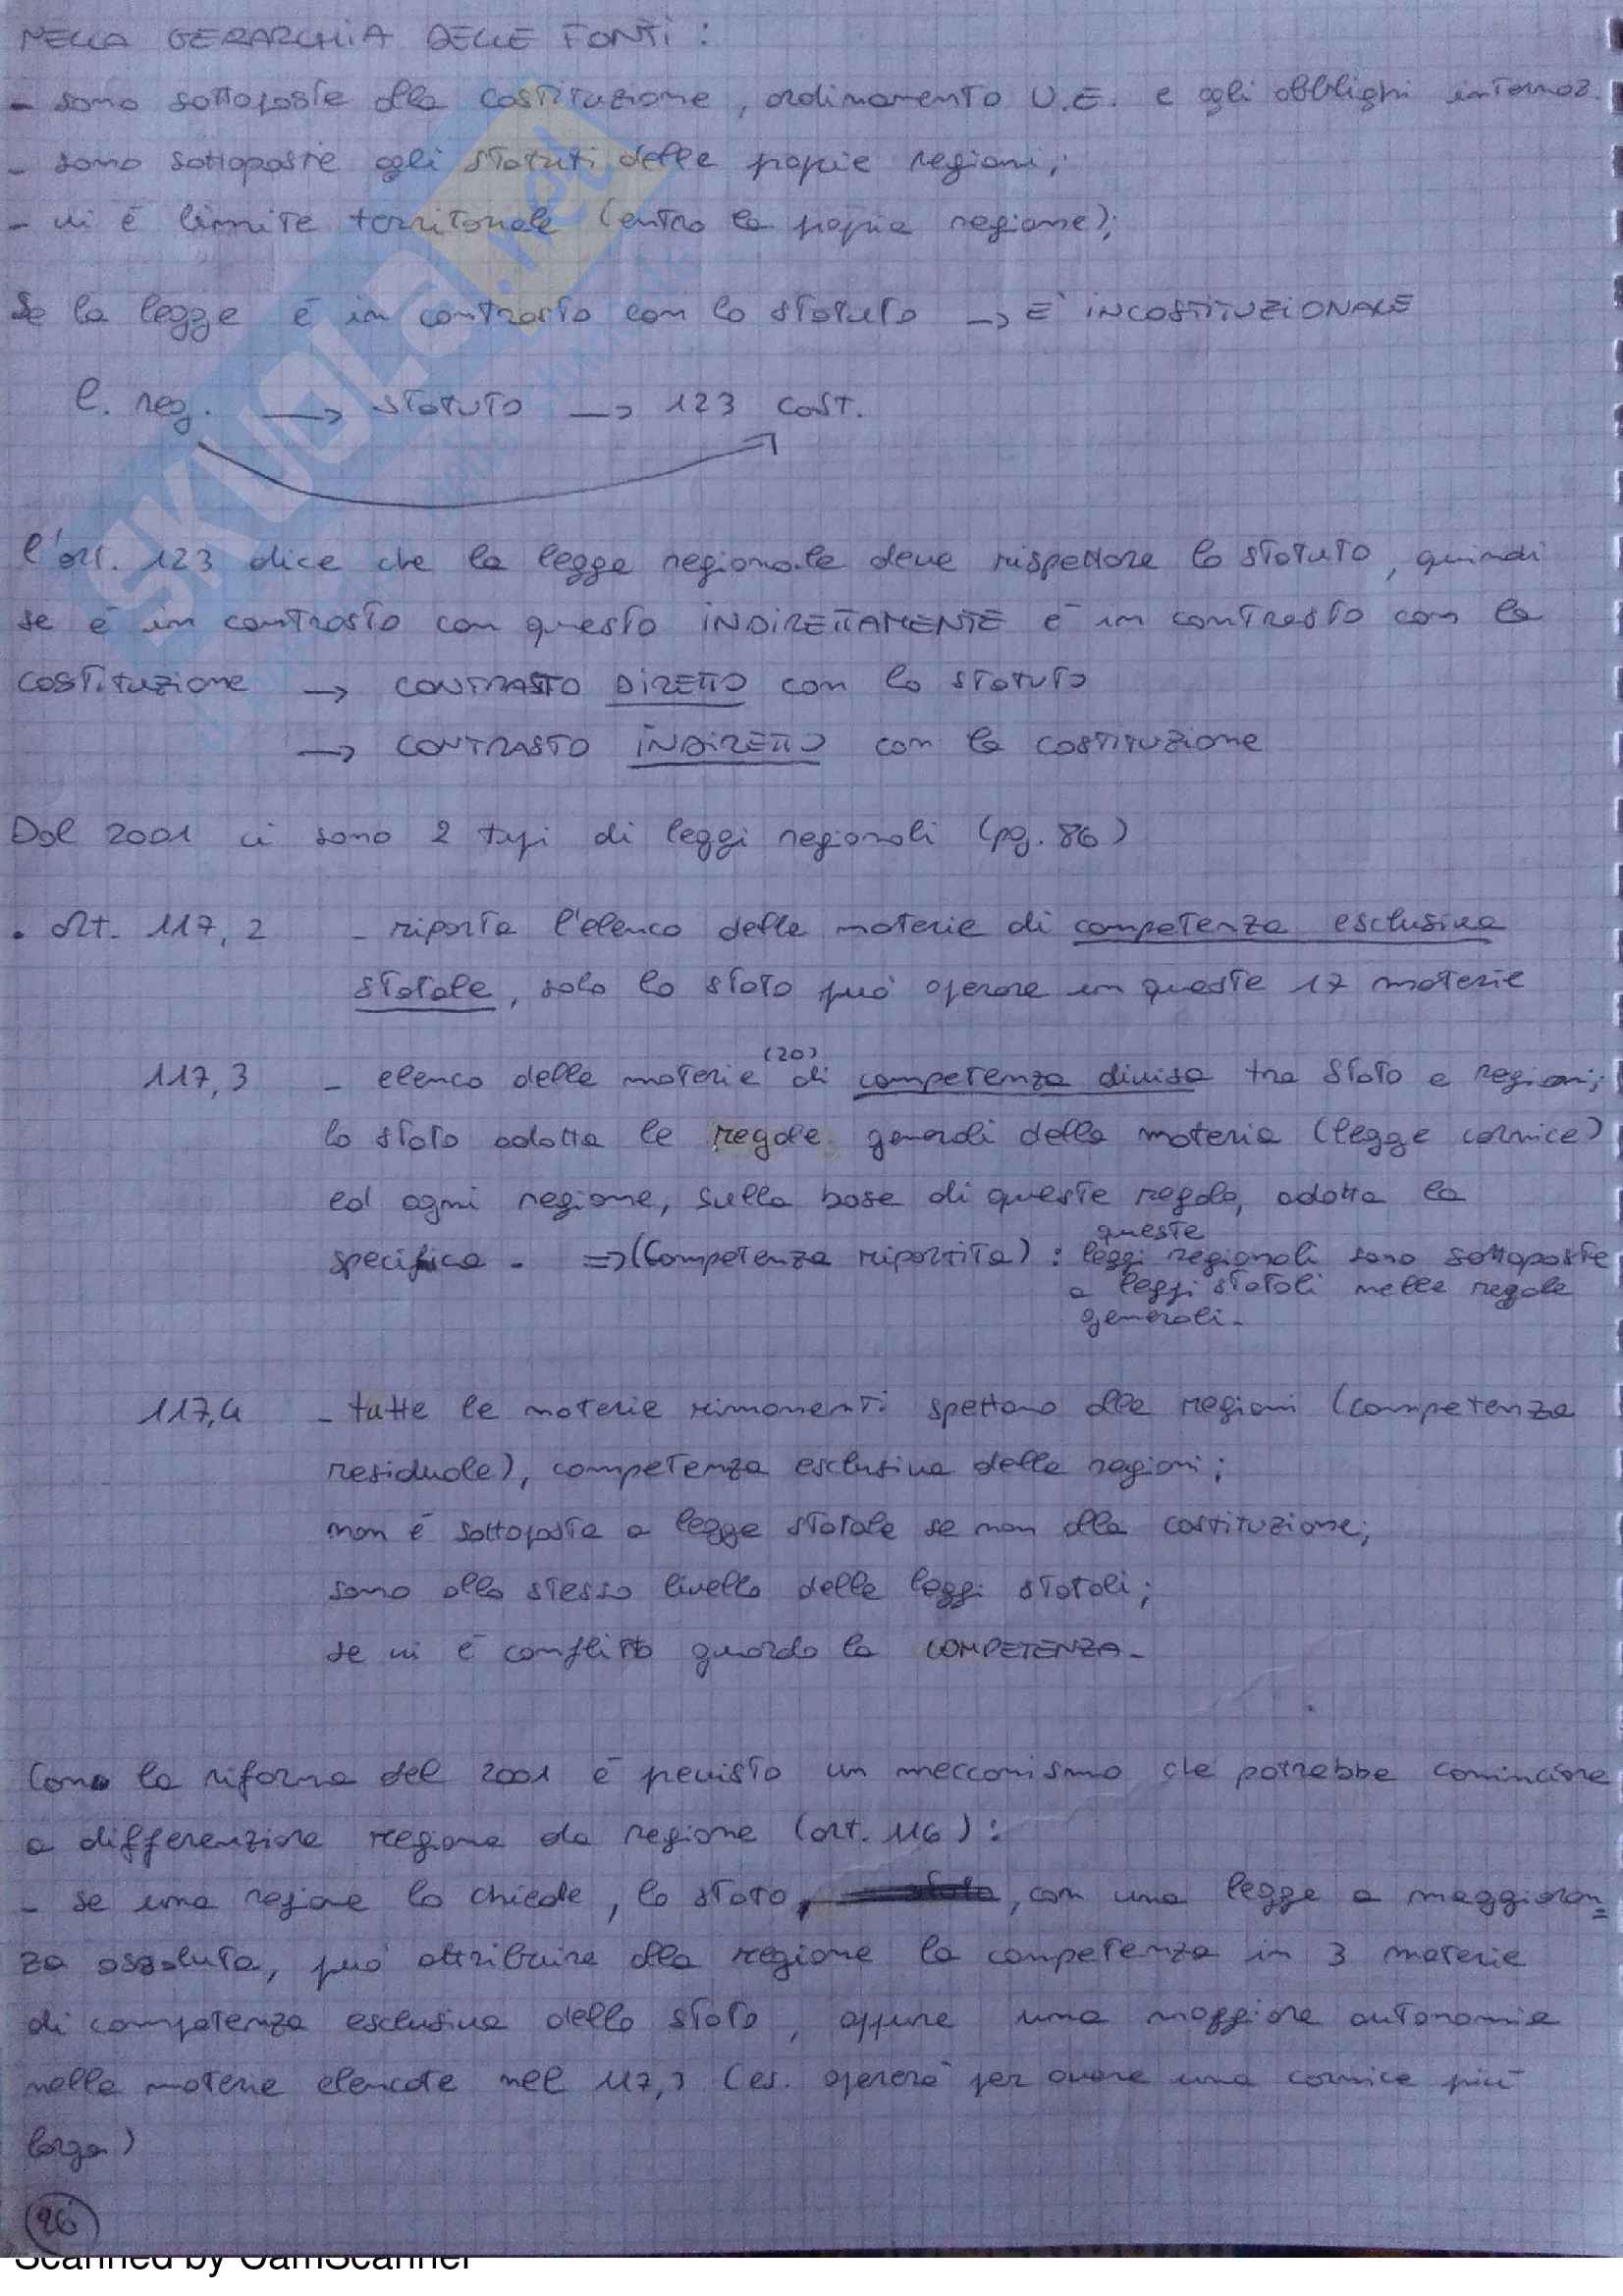 NELLA GERARCHIA DELLE FONTI :
- sono sottoposte alla costituzione, ordinamento U.E. e agli obblighi internaz.
- sono sottoposte agli statuti delle propie regioni;
- vi è limite territoriale (entro la propia regione);
Se la legge è in contrasto con lo statuto -> E' INCOSTITUZIONALE
l. reg. -> STATUTO -> 123 COST.
l'art. 123 dice che la legge regionale deve rispettare lo statuto, quindi
se è in contrasto con questo INDIRETTAMENTE è in contrasto con la
costituzione -> CONTRASTO DIRETTO con lo statuto
-> CONTRASTO INDIRETTO con la costituzione
Dal 2001 ci sono 2 tipi di leggi regionali (pg. 86)
. Art. 117, 2 - riporta l'elenco delle materie di competenza esclusiva
statale, solo lo stato può operare in queste 17 materie
117, 3 - elenco delle materie (20) di competenza divisa tra Stato e regioni;
lo stato adotta le regole generali della materia (legge cornice)
ed ogni regione, sulla base di queste regole, adotta la
specifica. => (Competenza ripartita) : queste leggi regionali sono sottoposte
a leggi statali nelle regole
generali.
117,4 - tutte le materie rimanenti spettano alle regioni (competenza
residuale), competenza esclusiva delle regioni;
non è sottoposta a legge statale se non alla costituzione;
sono allo stesso livello delle leggi statali;
se vi è conflitto guardo la COMPETENZA.
Con la riforma del 2001 è previsto un meccanismo che potrebbe cominciare
a differenziare regione da regione (art. 116) :
- se una regione lo chiede, lo stato, con una legge a maggioran=
za assoluta, può attribuire alla regione la competenza in 3 materie
di competenza esclusiva dello stato, oppure una maggiore autonomia
nelle materie elencate nel 117,3 (es. operare per avere una cornice più
larga)
26
Scanned by CamScanner
SKUOLA.net